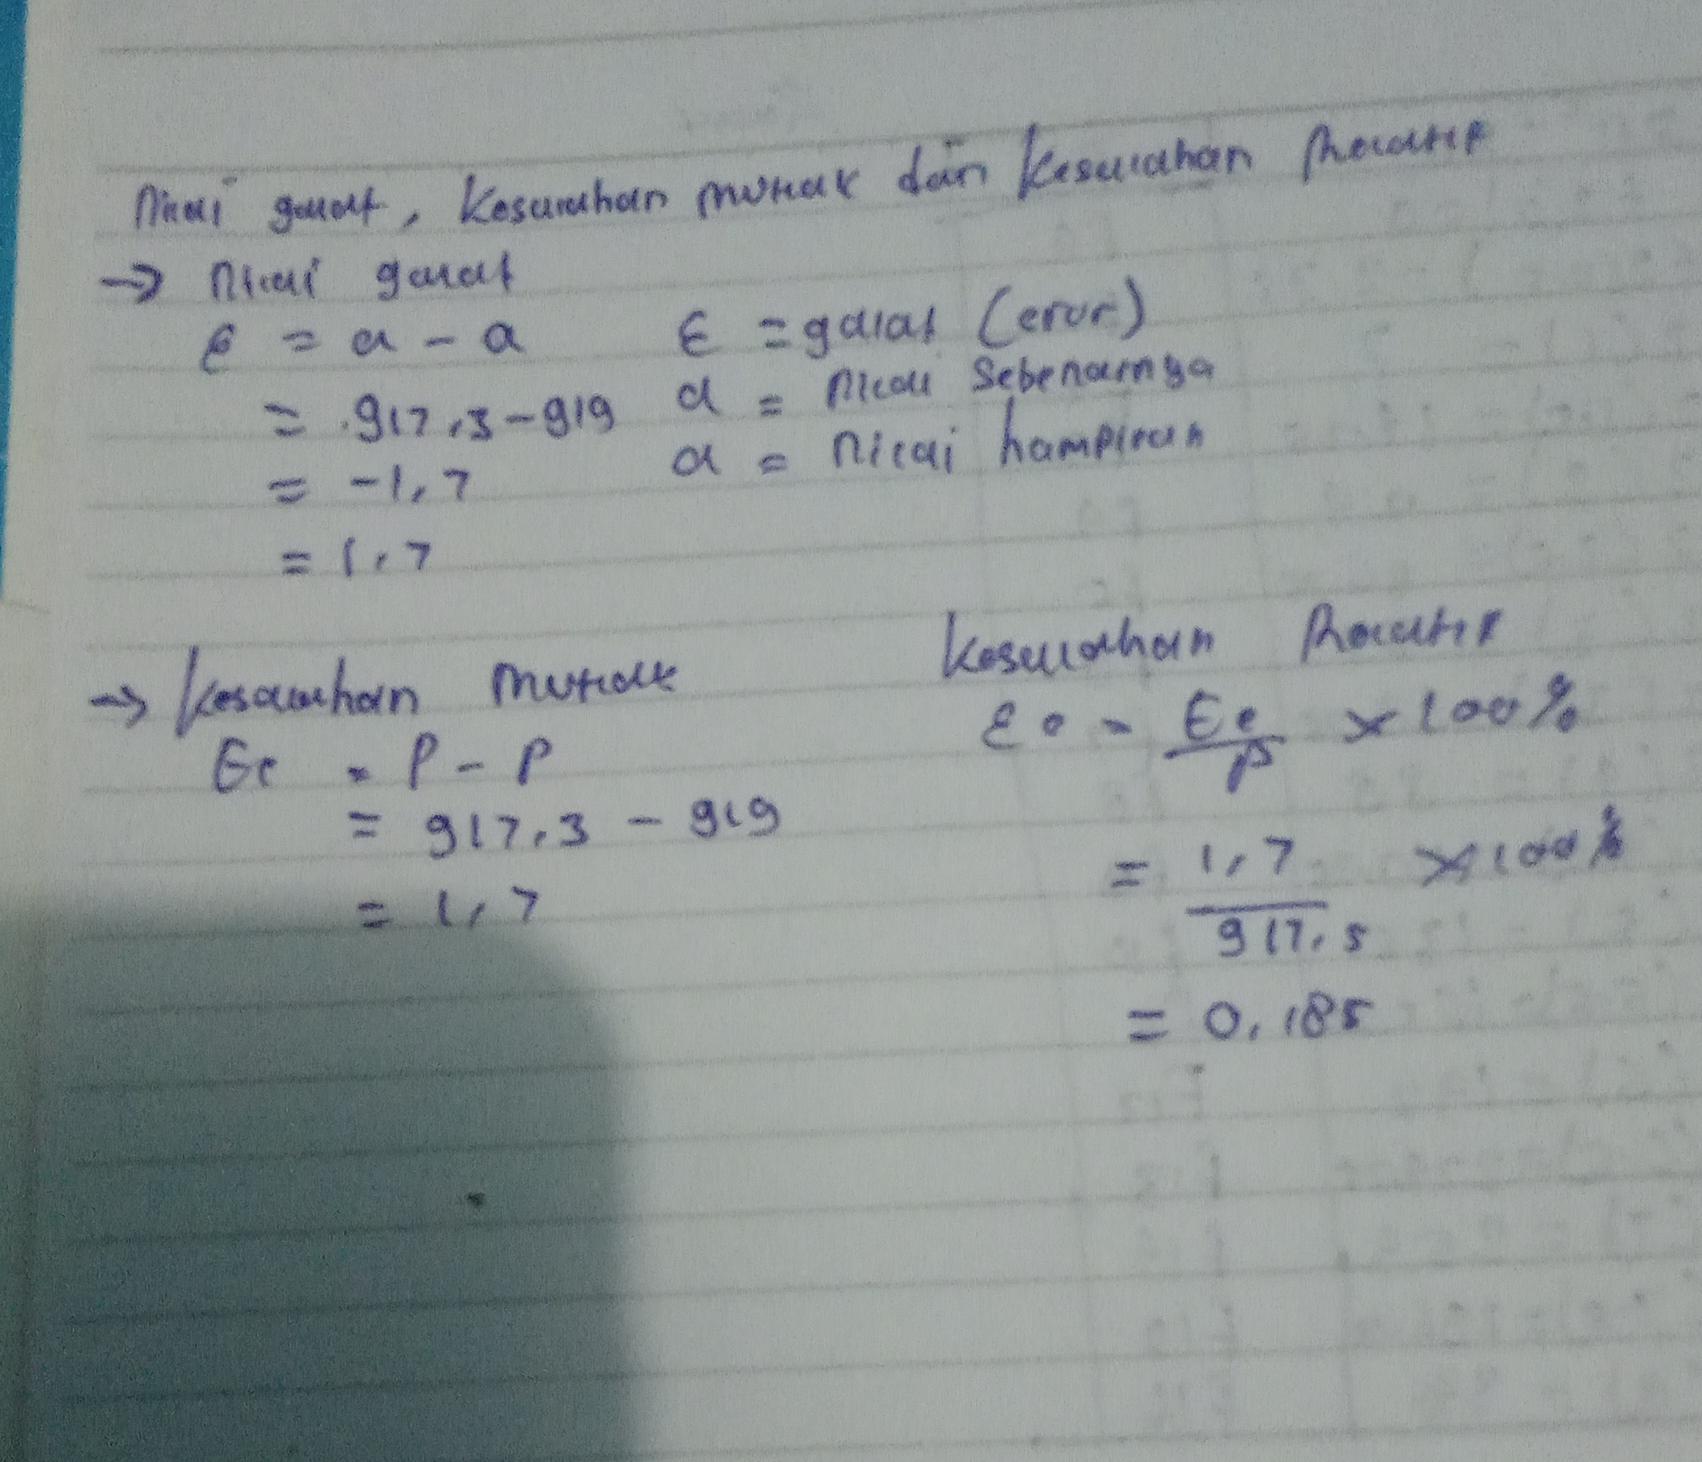 Nilai galat, Kesalahan mutlak dan Kesalahan Relatif
→ Nilai galat
ε = a - a
= 917,3 - 919
= -1,7
= 1,7
ε = galat (eror)
a = Nilai Sebenarnya
a = Nilai hampiran
→ Kesalahan Mutlak
Ee = P - P
= 917,3 - 919
= 1,7
Kesalahan Relatif
εe = Ee/P × 100%
= 1,7/917,5 × 100%
= 0,185